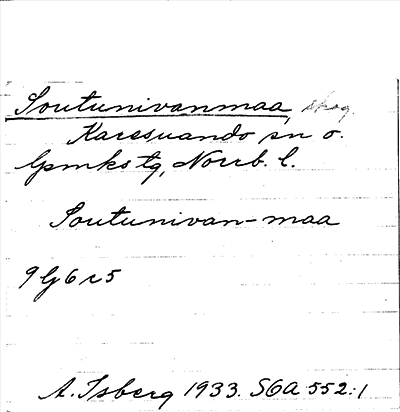 Soutunivanmaa, skog.
Karesuando sn o.
lpmks tg, Norrb. l.
Soutunivan-maa
9 G 6 c 5
A. Isberg 1933. SOA 552:1